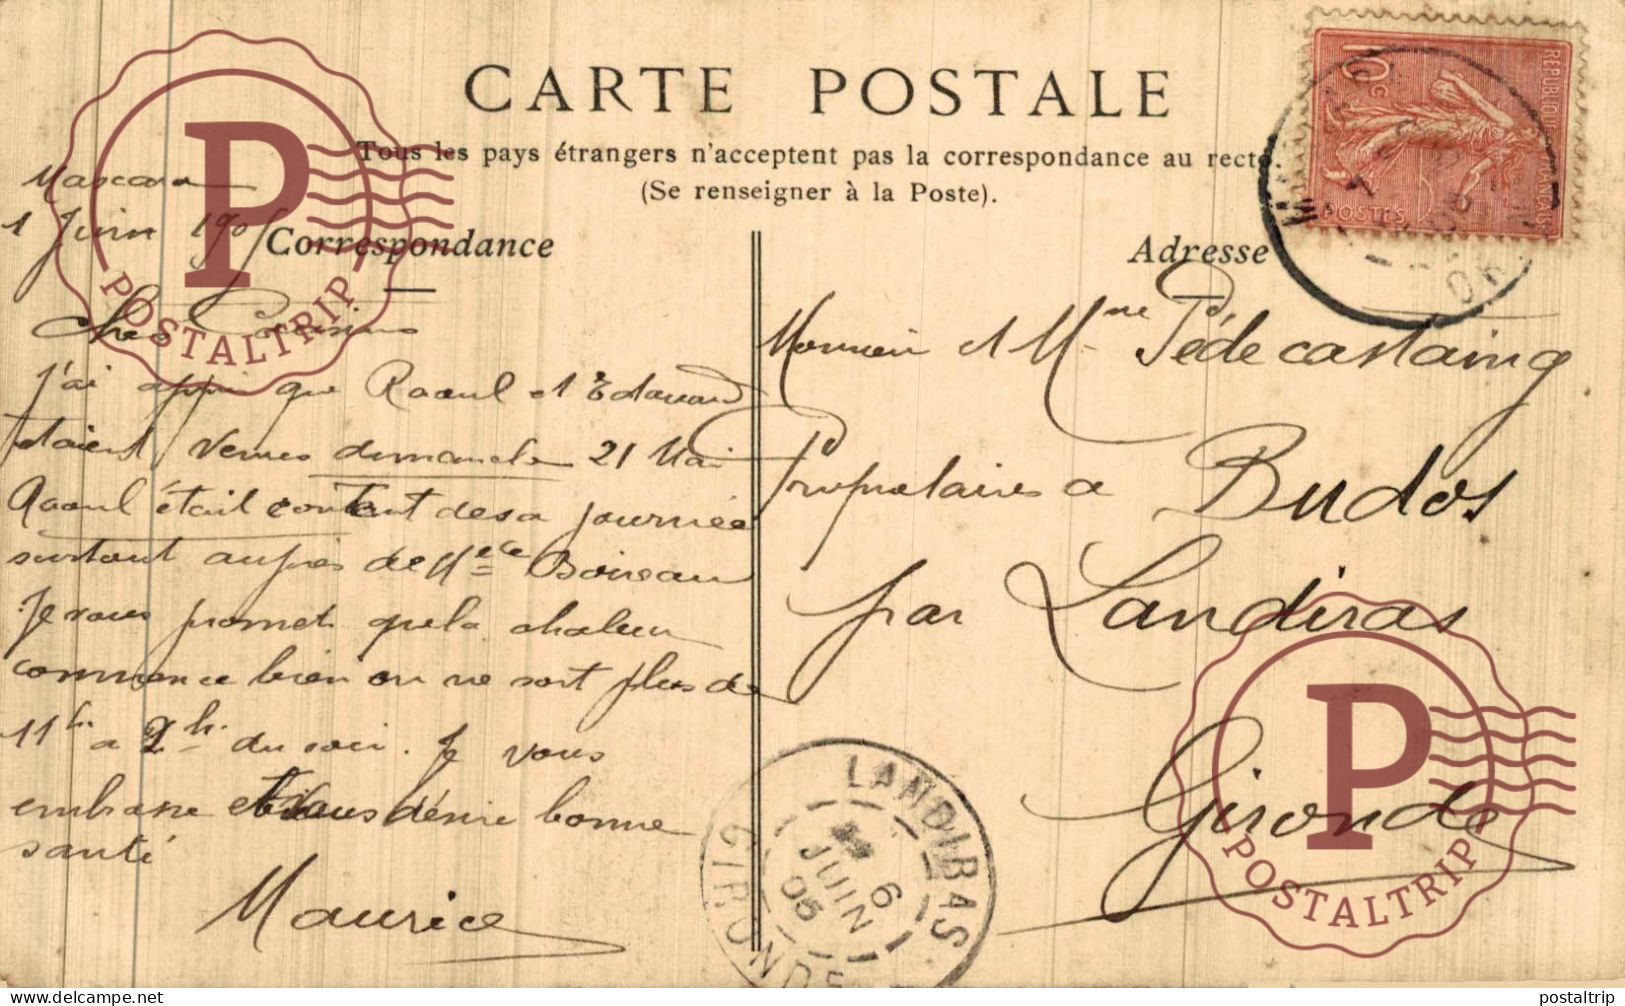 CARTE POSTALE
Tous les pays étrangers n'acceptent pas la correspondance au recto.
(Se renseigner à la Poste).
Correspondance
Adresse
Mascara
1 Juin 1905
Chers Cousins
j'ai appri que Raoul et Edouard
étaient venus dimanche 21 Mai
Raoul était content de sa journée
surtout auprès de Melle Boireau
Je vous promet que la chaleur
commence bien on ne sort plus de
11h a 2h du soir. Je vous
embrasse et vous désire bonne
santé
Maurice
Monsieur et Mme Pédecastaing
Propriétaires a Budos
par Landiras
Gironde
10c
REPUBLIQUE FRANÇAISE
POSTES
ORAN
LANDIRAS
6
JUIN
05
GIRONDE
P
POSTALTRIP
P
POSTALTRIP
www.delcampe.net
postaltrip